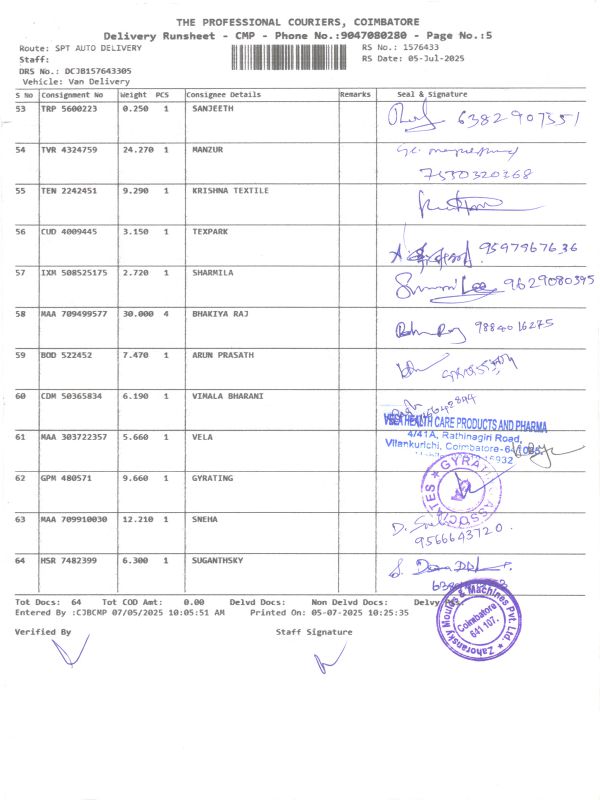 THE PROFESSIONAL COURIERS, COIMBATORE
Delivery Runsheet - CMP - Phone No.:9047080280 - Page No.:5
Route: SPT AUTO DELIVERY RS No.: 1576433
Staff: RS Date: 05-Jul-2025
DRS No.: DCJB157643305
Vehicle: Van Delivery
S No Consignment No Weight PCS Consignee Details Remarks Seal & Signature
53 TRP 5600223 0.250 1 SANJEETH 6382907351
54 TVR 4324759 24.270 1 MANZUR
7530320368
55 TEN 2242451 9.290 1 KRISHNA TEXTILE
56 CUD 4009445 3.150 1 TEXPARK 9597967636
57 IXM 508525175 2.720 1 SHARMILA 9629080395
58 MAA 709499577 30.000 4 BHAKIYA RAJ 9884016275
59 BOD 522452 7.470 1 ARUN PRASATH
60 CDM 50365834 6.190 1 VIMALA BHARANI
HEALTH CARE PRODUCTS AND PHARMA
61 MAA 303722357 5.660 1 VELA 4/41A, Rathinagiri Road,
Vilankurichi, Coimbatore-
62 GPM 480571 9.660 1 GYRATING
63 MAA 709910030 12.210 1 SNEHA
9566643720
64 HSR 7482399 6.300 1 SUGANTHSKY
Tot Docs: 64 Tot COD Amt: 0.00 Delvd Docs: Non Delvd Docs:
Entered By :CJBCMP 07/05/2025 10:05:51 AM Printed On: 05-07-2025 10:25:35
Zahoransky Moulds & Machines Pvt. Ltd.
Coimbatore
641 107.
Verified By Staff Signature